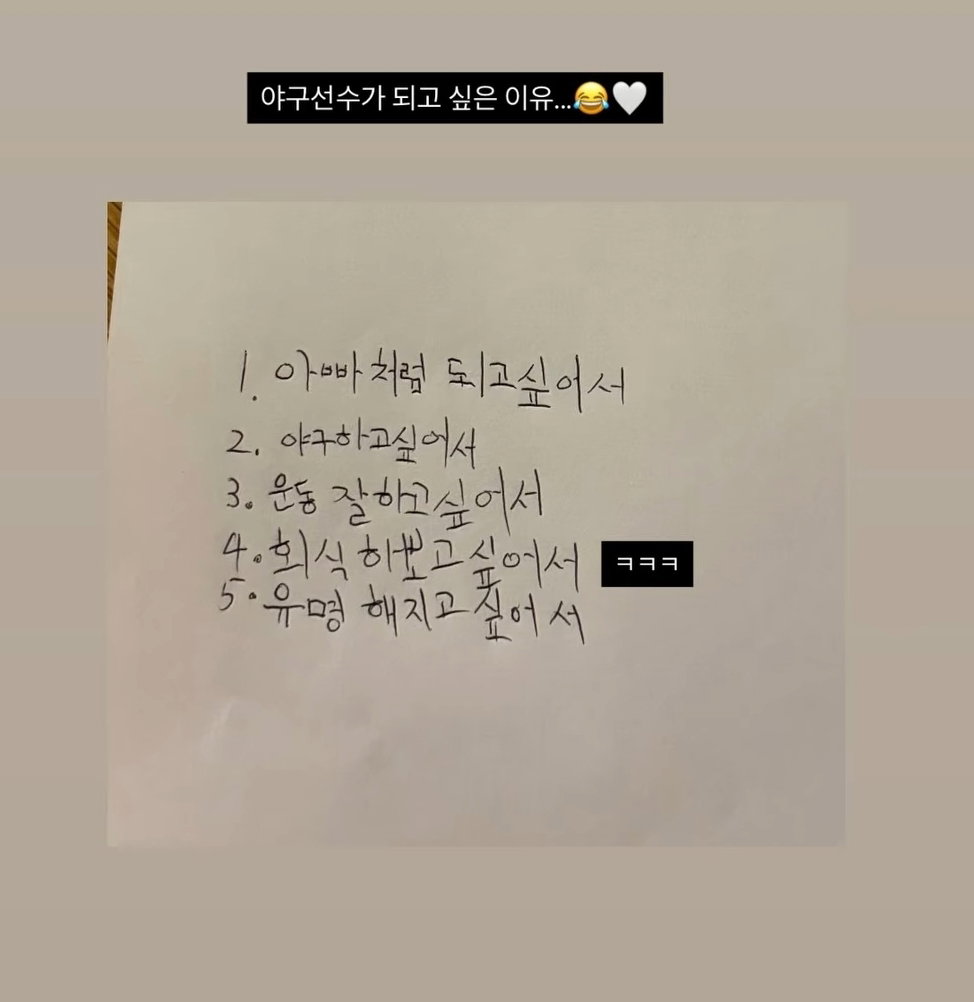 야구선수가 되고 싶은 이유...😂🤍
1. 아빠처럼 되고싶어서
2. 야구하고싶어서
3. 운동 잘하고싶어서
4. 회식 해보고싶어서 ㅋㅋㅋ
5. 유명해지고싶어서